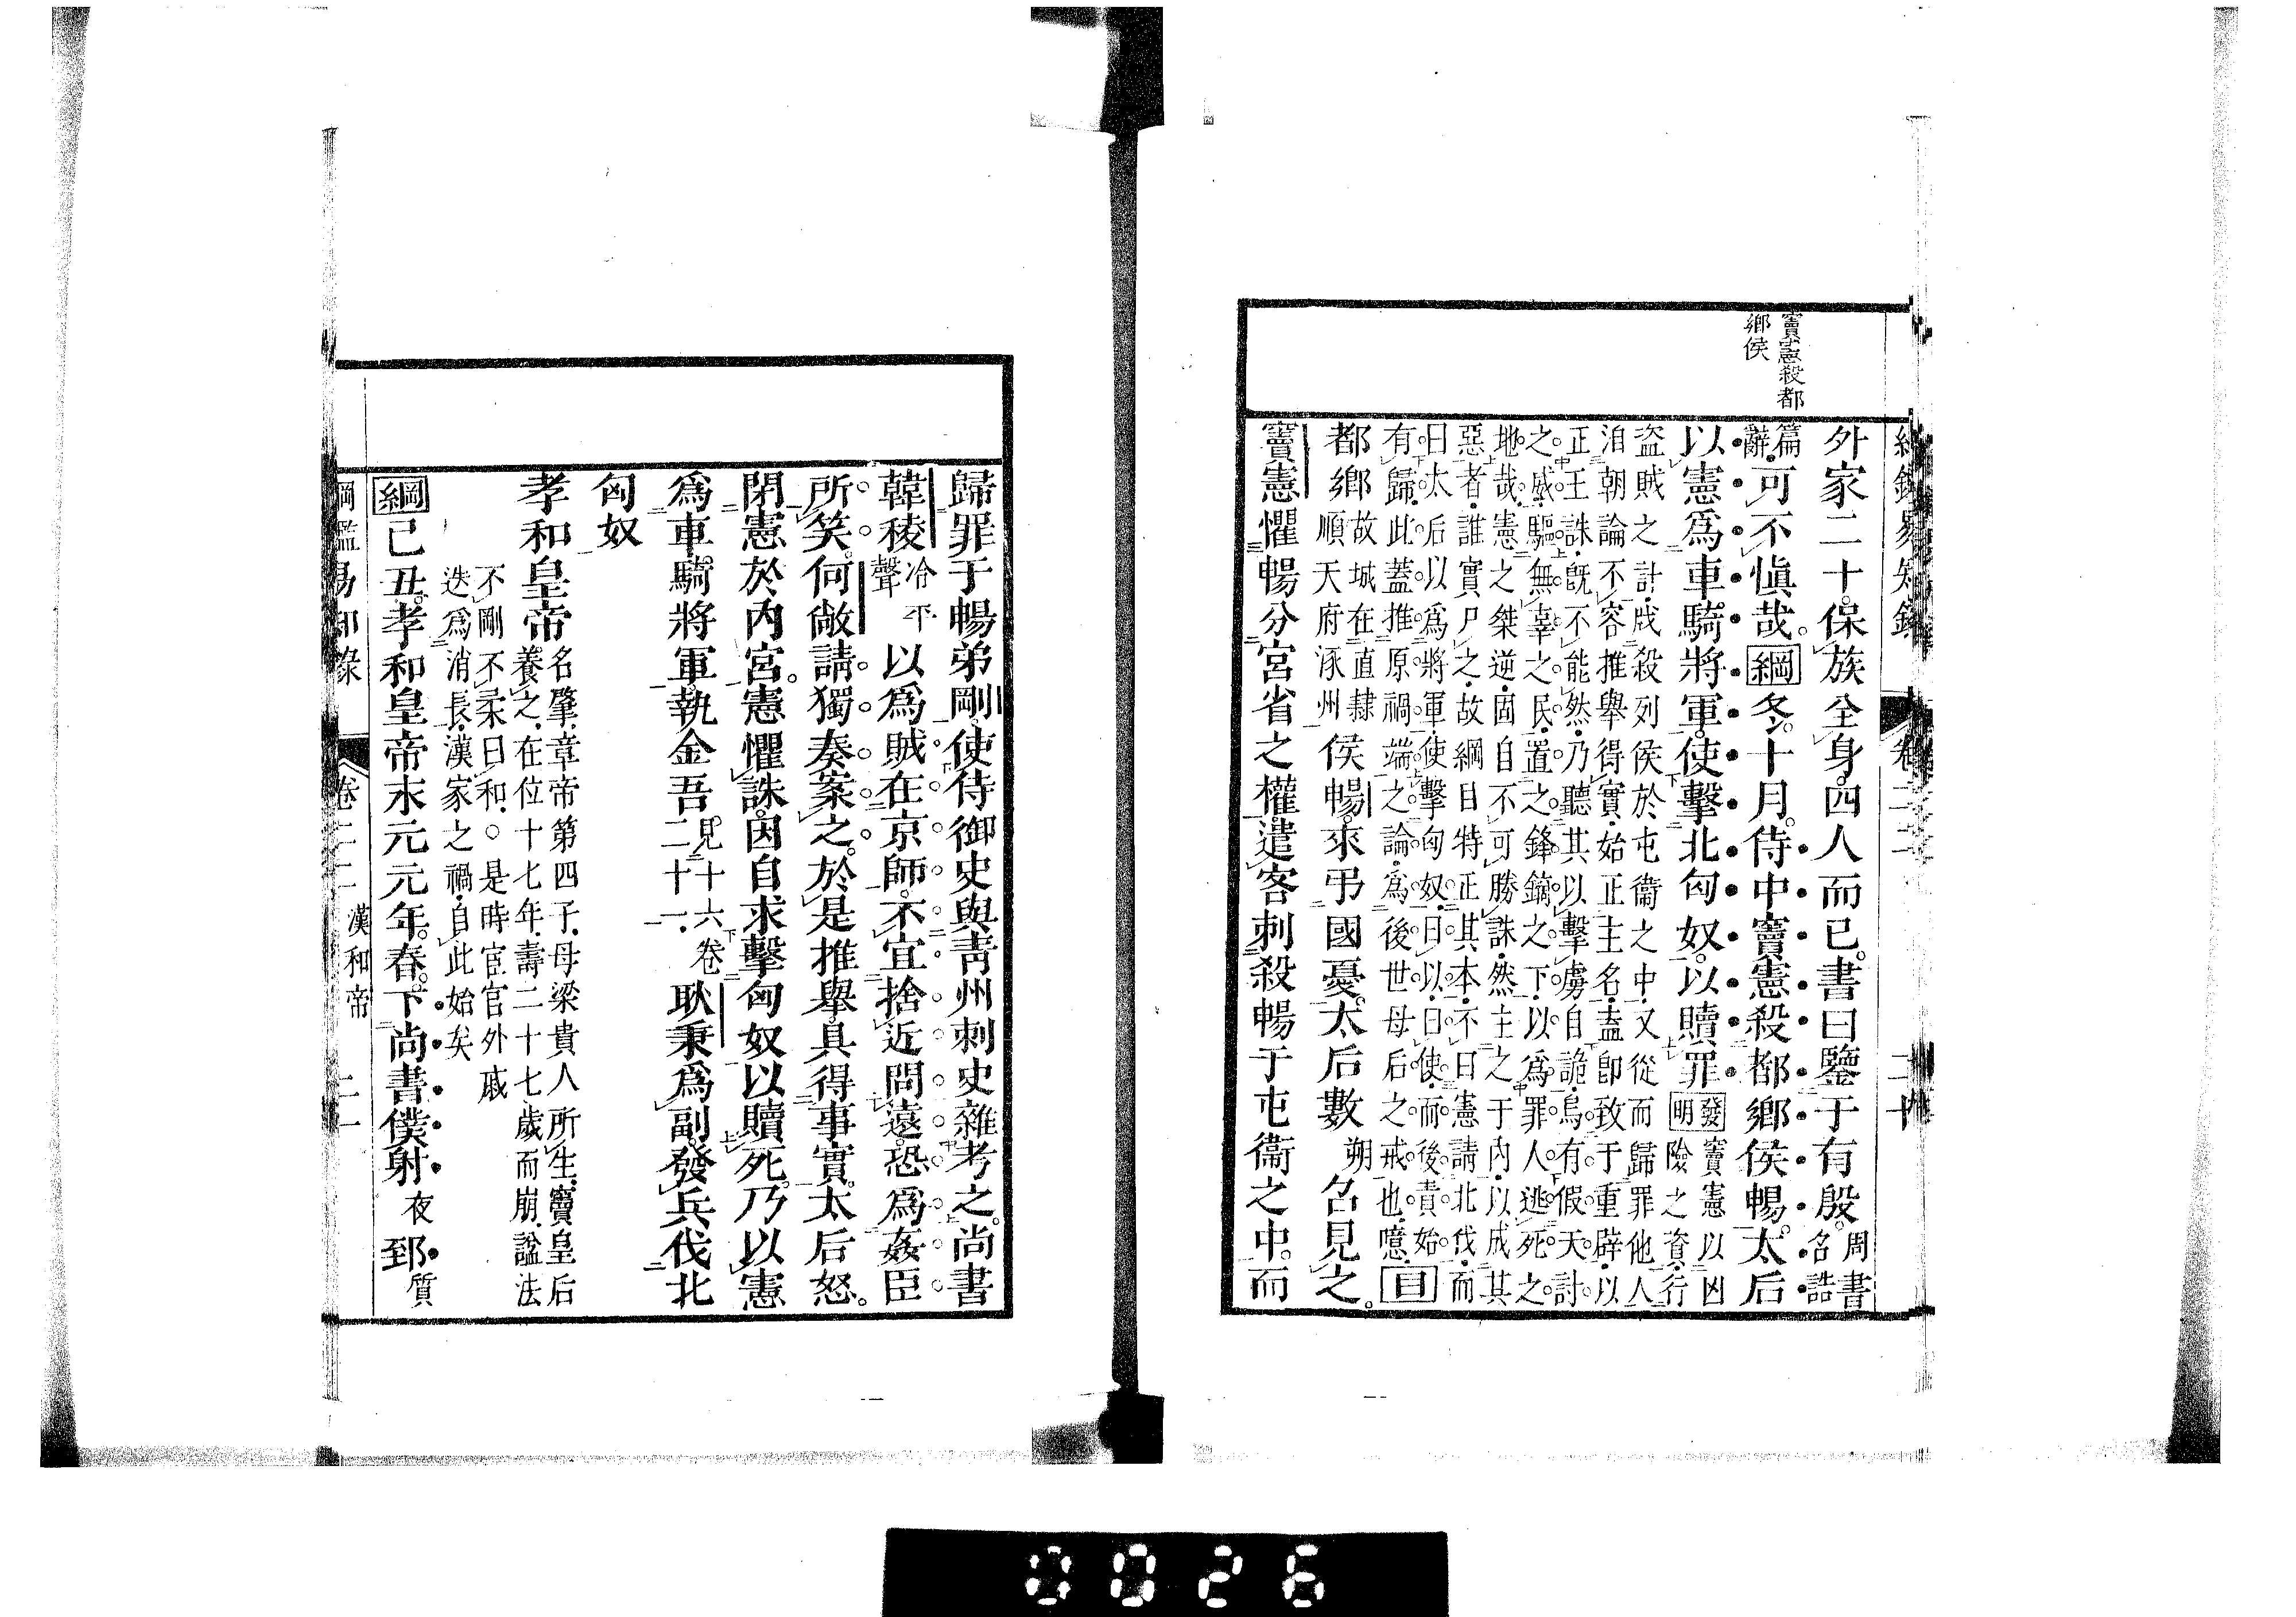 綱鑑易知錄 卷二十二 二十
竇憲殺都
鄉侯
外家二十保族全身四人而已。書曰鑒于有殷。周書召誥
篇辭。可不愼哉。綱冬十月。侍中竇憲殺都鄉侯暢。太后
以憲爲車騎將軍。使擊北匈奴。以贖罪發明竇憲以凶險之資。行
盜賊之計。戕殺列侯於屯衞之中。又從而歸罪他人
洎朝論不容推舉得實。始正主名。盍卽致于重辟。以
正王誅。旣不能然。乃聽其以擊虜自詭。烏有假天討
之威。驅無辜之民。置之鋒鏑之下。以爲罪人逃死之
地哉。憲之桀逆。固自不可勝誅。然主之于内。以成其
惡者。誰實尸之。故綱目特正其本。不曰憲請北伐。而
曰太后以爲將軍。使擊匈奴。曰以。曰使。而後責始
有歸。此蓋推原禍端之論。爲後世母后之戒也。噫。目
都鄉故城在直隸順天府涿州侯暢。來弔國憂。太后數朔召見之。
竇憲懼暢分宮省之權。遣客刺殺暢于屯衞之中。而
歸罪于暢弟剛。使侍御史與靑州刺史雜考之。尚書
韓稜冷平聲以爲賊在京師。不宜捨近問遠。恐爲姦臣
所笑。何敞請獨奏案之。於是推舉具得事實。太后怒。
閉憲於内宮。憲懼誅。因自求擊匈奴以贖死。乃以憲
爲車騎將軍。執金吾。見十六卷二十一。耿秉爲副。發兵伐北
匈奴
孝和皇帝名肇。章帝第四子。母梁貴人所生。竇皇后養之。在位十七年。壽二十七歲而崩。諡法
不剛不柔曰和。○是時宦官外戚
迭爲消長。漢家之禍。自此始矣
綱己丑。孝和皇帝永元元年。春。下尚書僕射夜郅質
綱鑑易知錄 卷二十二 漢和帝 二十一
0026